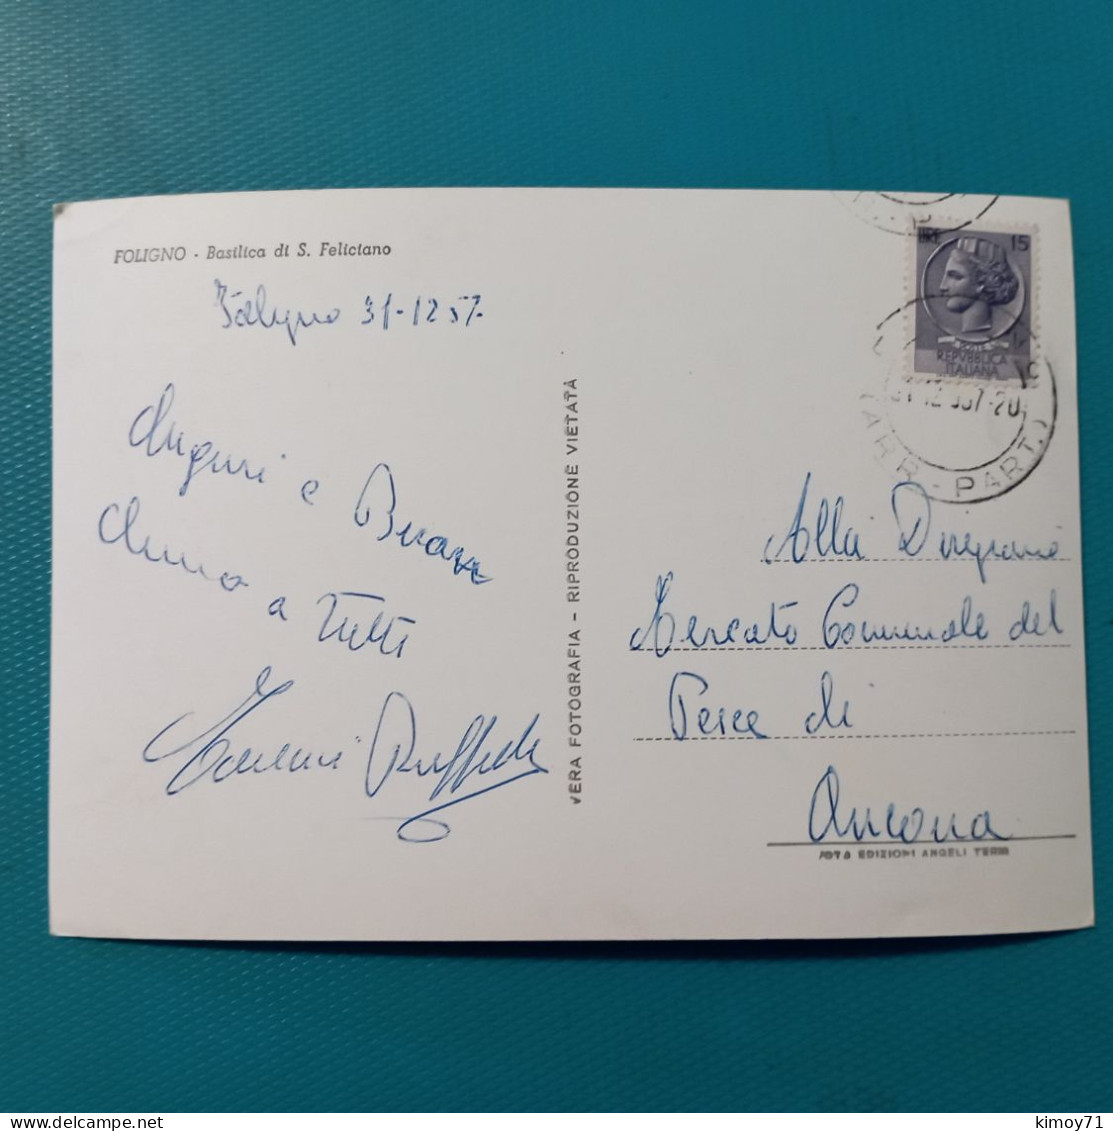 FOLIGNO - Basilica di S. Feliciano
Foligno 31-12 57.
Auguri e Buon
Anno a Tutti
VERA FOTOGRAFIA - RIPRODUZIONE VIETATA
LIRE 15
POSTE
REPVBBLICA
ITALIANA
31 12 957-20
(ARR.-PART.)
Alla Direzione
Mercato Comunale del
Pesce di
Ancona
FOTO EDIZIONI ANGELI TERNI
kimoy71